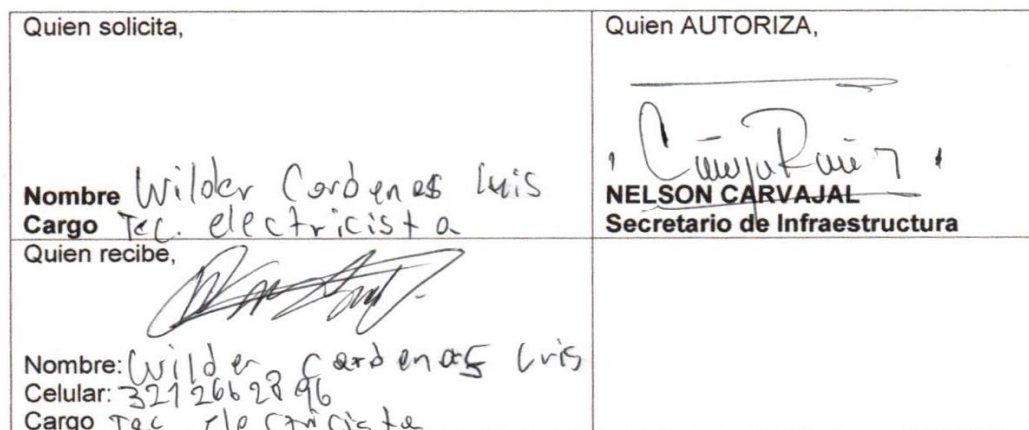 Quien solicita,
Nombre Wilder Cardenas Luis
Cargo Tec. electricista
Quien AUTORIZA,
NELSON CARVAJAL
Secretario de Infraestructura
Quien recibe,
Nombre: Wilder Cardenas Luis
Celular: 3212662896
Cargo Tec. Electricista